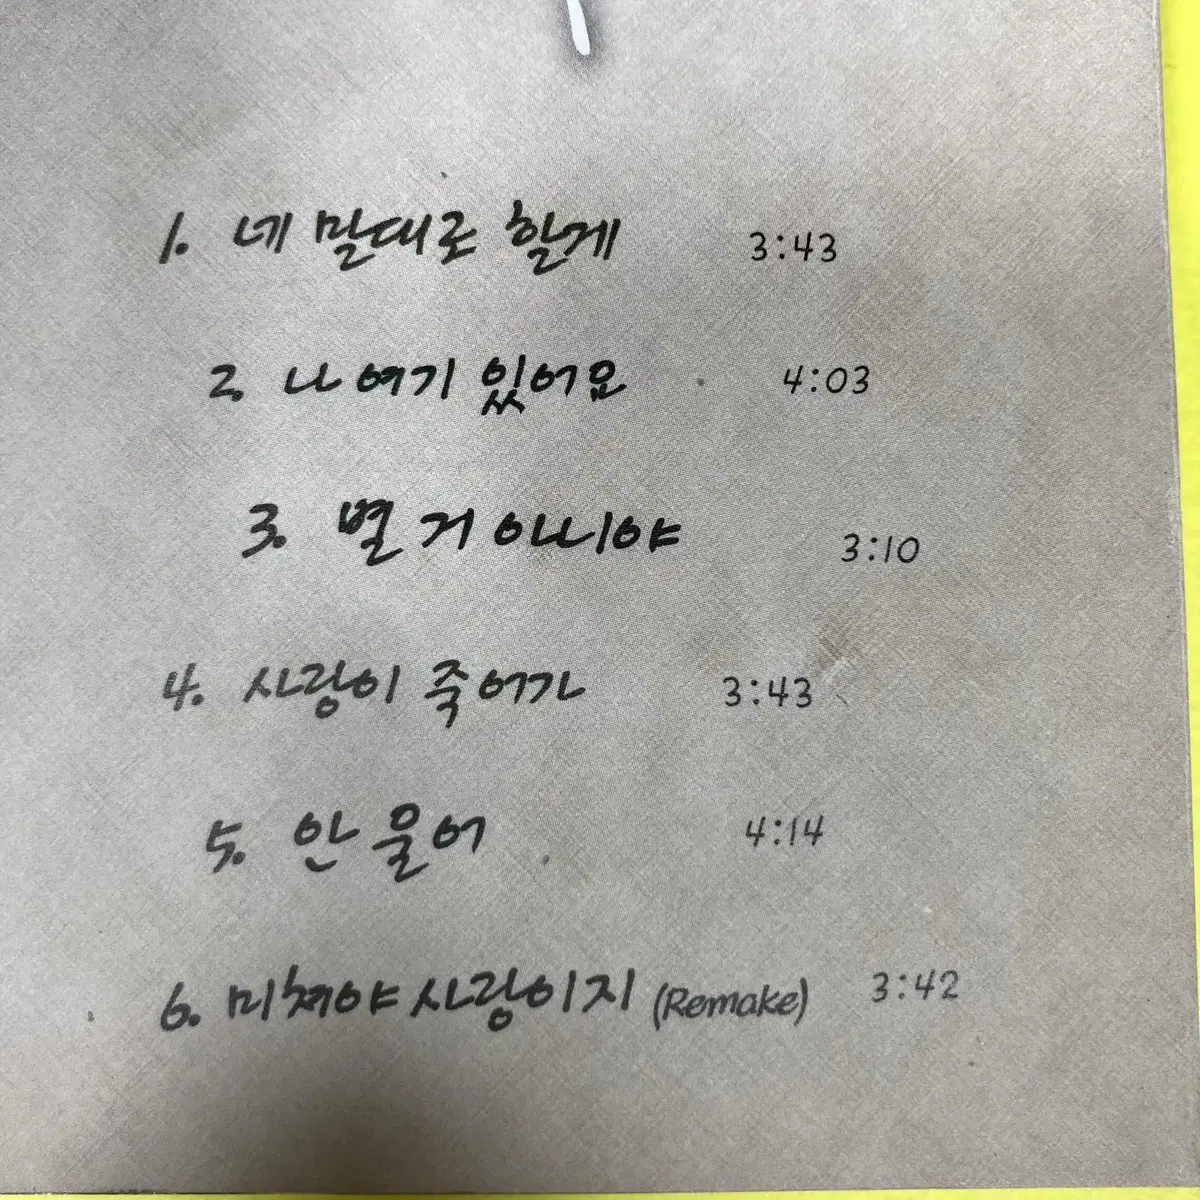 1. 네 말대로 할게 3:43
2. 나 여기 있어요 4:03
3. 별 거 아니야 3:10
4. 사랑이 죽어가 3:43
5. 안 울어 4:14
6. 미쳐야 사랑이지 (Remake) 3:42